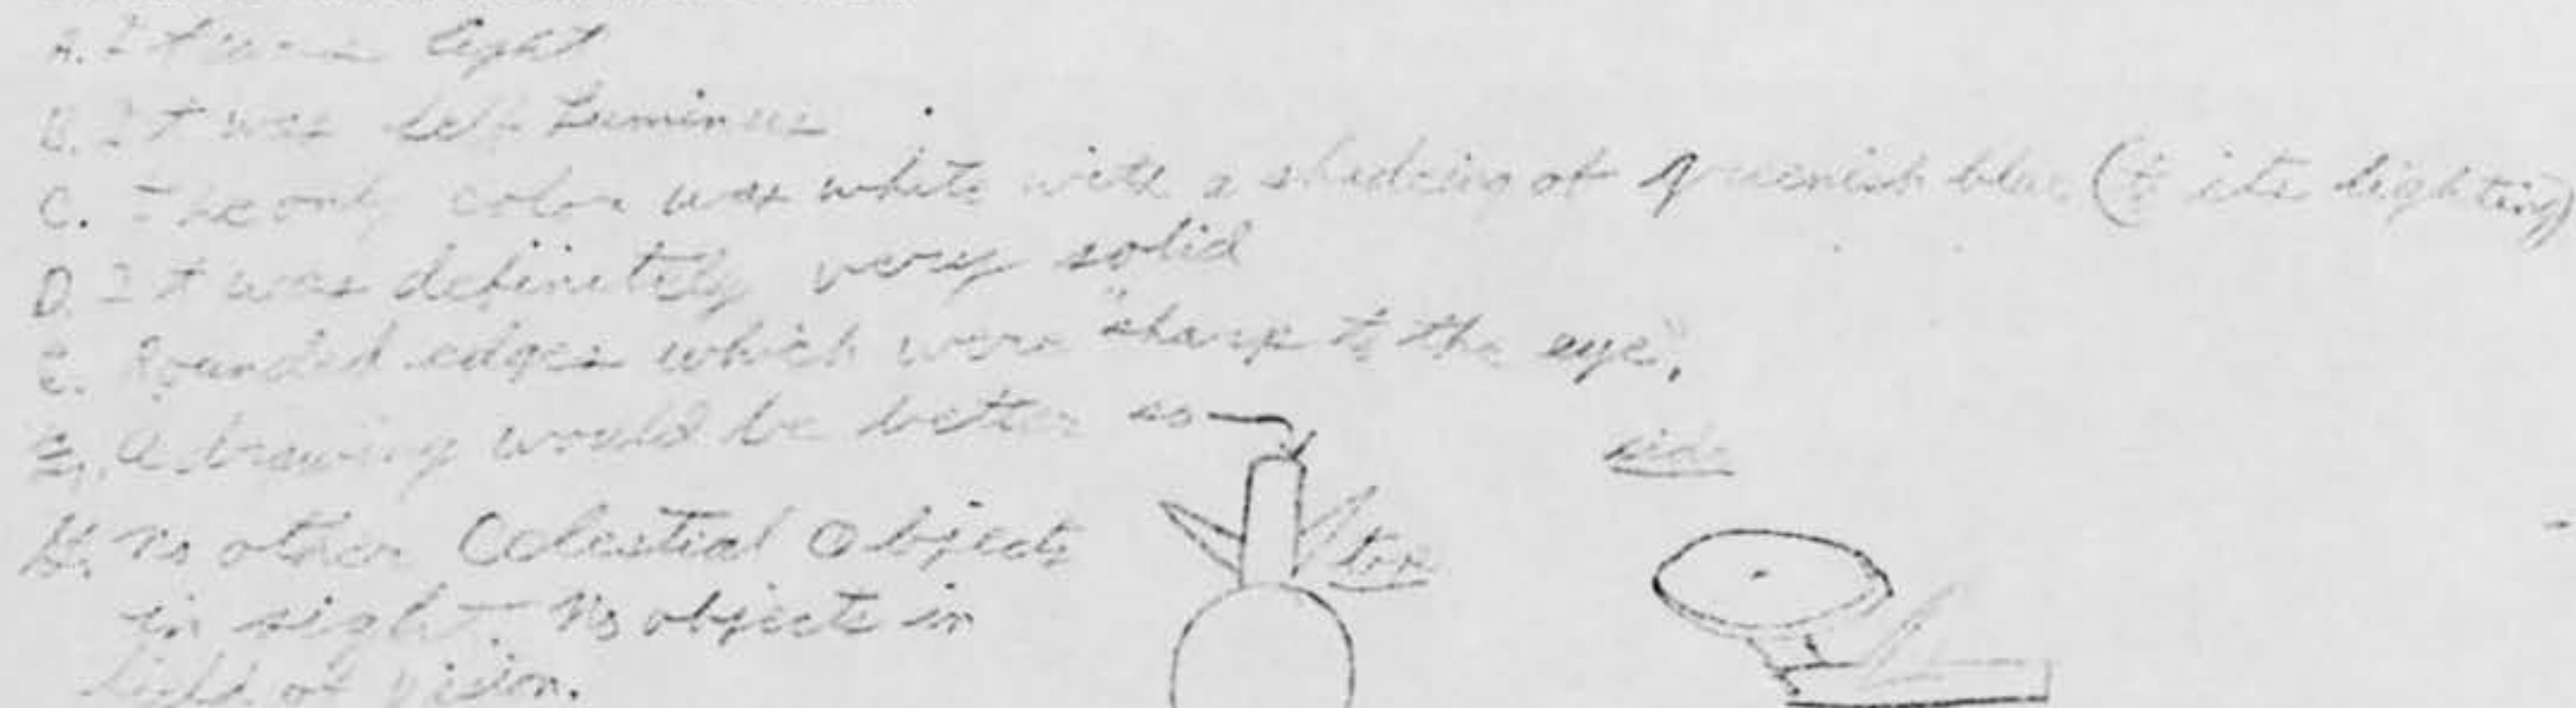 A. It was light
B. It was self Luminus
C. The only color was white with a shading of greenish blue (to its lighting)
D. It was definitely very solid
E. Rounded edges which were "sharp to the eye".
A drawing would be better so
side
top
No other Celestial Objects
in sight. No objects in
field of vision.